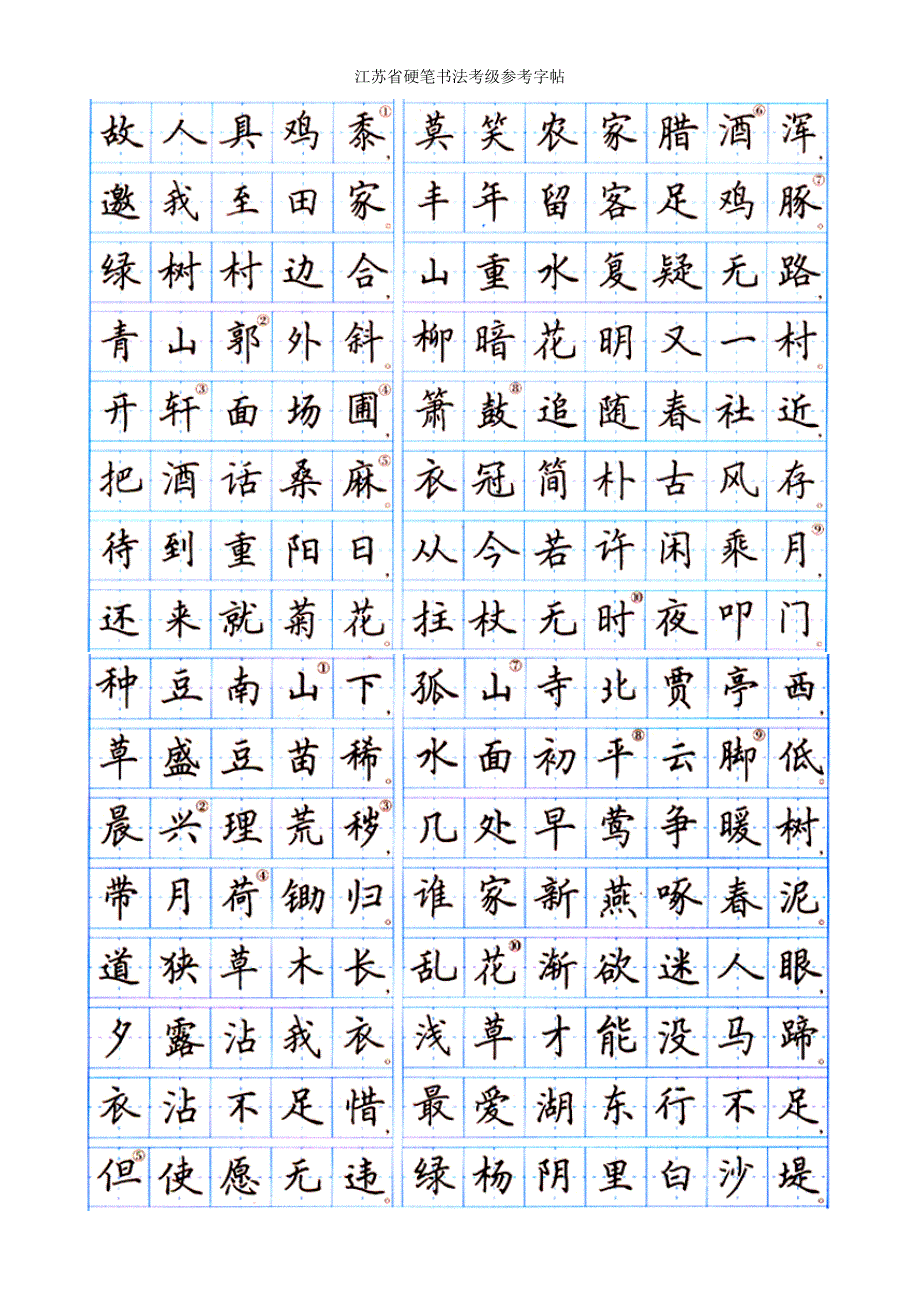 江苏省硬笔书法考级参考字帖
故人具鸡黍①，
邀我至田家。
绿树村边合，
青山郭②外斜。
开轩③面场圃④，
把酒话桑麻⑤。
待到重阳日，
还来就菊花。
莫笑农家腊酒⑥浑，
丰年留客足鸡豚⑦。
山重水复疑无路，
柳暗花明又一村。
箫鼓⑧追随春社近，
衣冠简朴古风存。
从今若许闲乘月⑨，
拄杖无时⑩夜叩门。
种豆南山①下，
草盛豆苗稀。
晨兴②理荒秽③，
带月荷④锄归。
道狭草木长，
夕露沾我衣。
衣沾不足惜，
但⑤使愿无违。
孤山⑦寺北贾亭西，
水面初平⑧云脚⑨低。
几处早莺争暖树，
谁家新燕啄春泥。
乱花⑩渐欲迷人眼，
浅草才能没马蹄。
最爱湖东行不足，
绿杨阴里白沙堤。